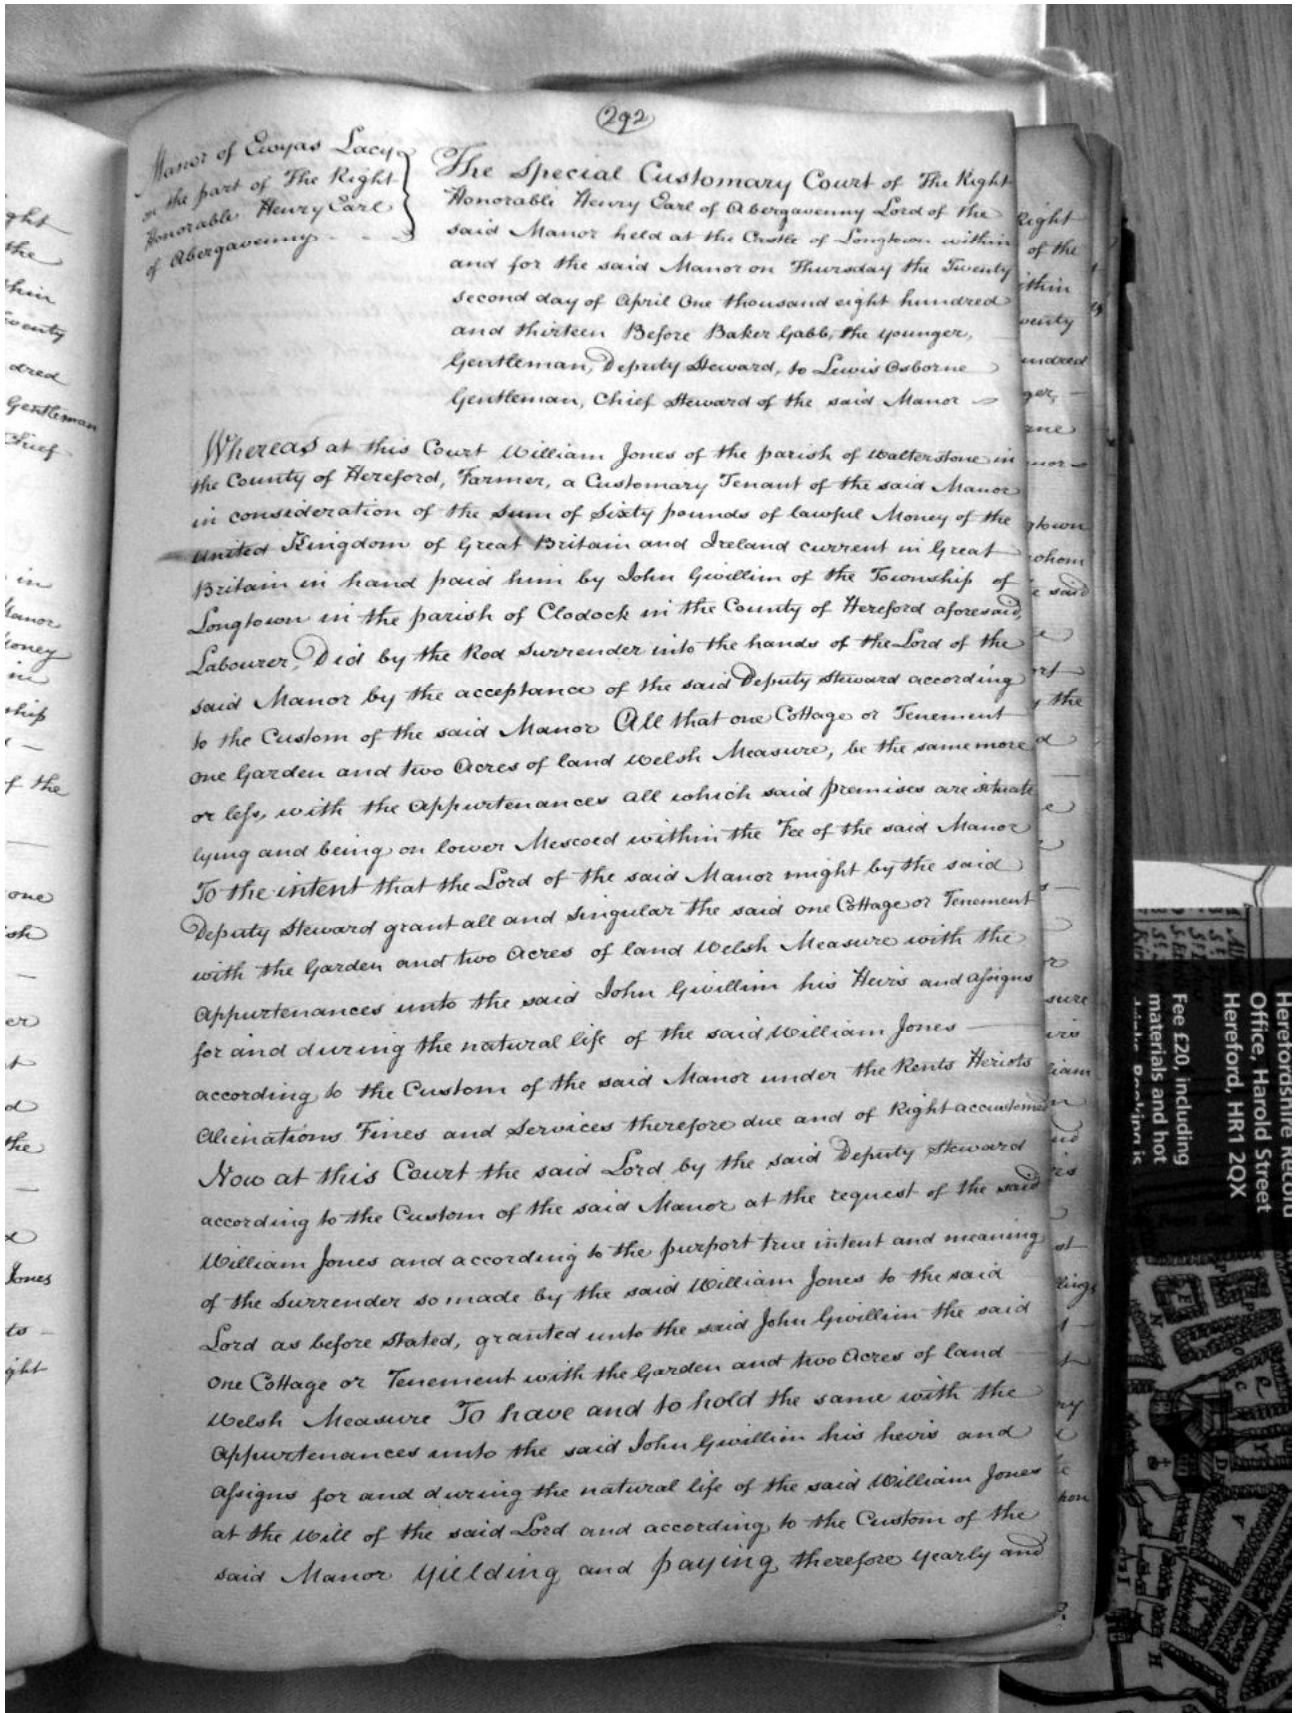 292
Manor of Ewyas Lacy
on the part of The Right
Honorable Henry Earl
of Abergavenny
The Special Customary Court of The Right
Honorable Henry Earl of Abergavenny Lord of the
said Manor held at the Castle of Longtown within
and for the said Manor on Thursday the Twenty
second day of April One thousand eight hundred
and thirteen Before Baker Gabb, the younger,
Gentleman, Deputy Steward, to Lewis Osborne
Gentleman, Chief Steward of the said Manor
Whereas at this Court William Jones of the parish of Walterstone in
the County of Hereford, Farmer, a Customary Tenant of the said Manor
in consideration of the Sum of Sixty pounds of lawful Money of the
United Kingdom of Great Britain and Ireland current in Great
Britain in hand paid him by John Gwillim of the Township of
Longtown in the parish of Clodock in the County of Hereford aforesaid,
Labourer, Did by the Rod Surrender into the hands of the Lord of the
said Manor by the acceptance of the said Deputy Steward according
to the Custom of the said Manor All that one Cottage or Tenement
one Garden and two Acres of land Welsh Measure, be the same more
or less, with the Appurtenances all which said premises are situate
lying and being on lower Mescoed within the Fee of the said Manor
To the intent that the Lord of the said Manor might by the said
Deputy Steward grant all and Singular the said one Cottage or Tenement
with the Garden and two Acres of land Welsh Measure with the
Appurtenances unto the said John Gwillim his Heirs and assigns
for and during the natural life of the said William Jones
according to the Custom of the said Manor under the Rents Heriots
Alienations Fines and Services therefore due and of Right accustomed
Now at this Court the said Lord by the said Deputy Steward
according to the Custom of the said Manor at the request of the said
William Jones and according to the purport true intent and meaning
of the Surrender so made by the said William Jones to the said
Lord as before stated, granted unto the said John Gwillim the said
one Cottage or Tenement with the Garden and two Acres of land
Welsh Measure To have and to hold the same with the
Appurtenances unto the said John Gwillim his heirs and
assigns for and during the natural life of the said William Jones
at the Will of the said Lord and according to the Custom of the
said Manor Yielding and paying therefore yearly and
Herefordshire Record
Office, Harold Street
Hereford, HR1 2QX
Fee £20, including
materials and hot